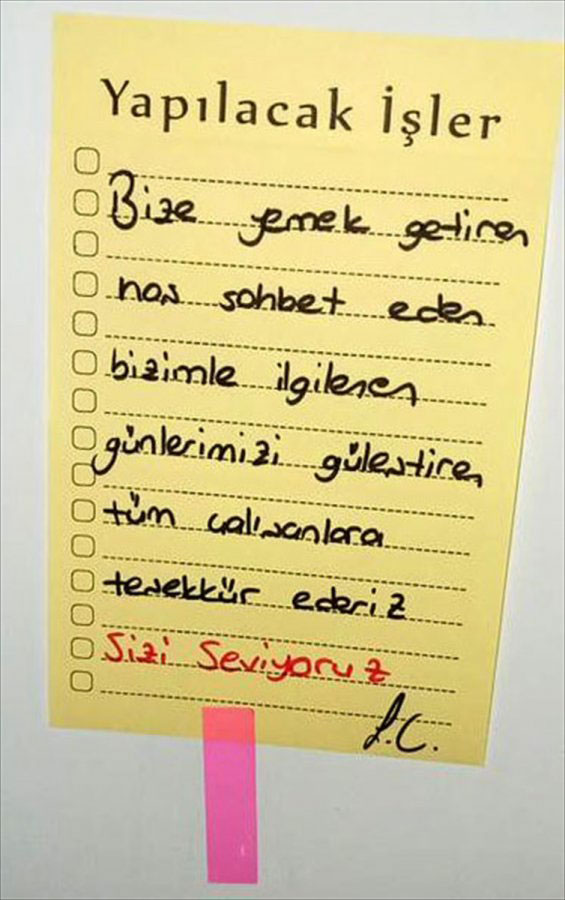 Yapılacak İşler
Bize yemek getiren
hoş sohbet eden
bizimle ilgilenen
günlerimizi güleştiren
tüm çalışanlara
teşekkür ederiz
Sizi Seviyoruz
L.C.